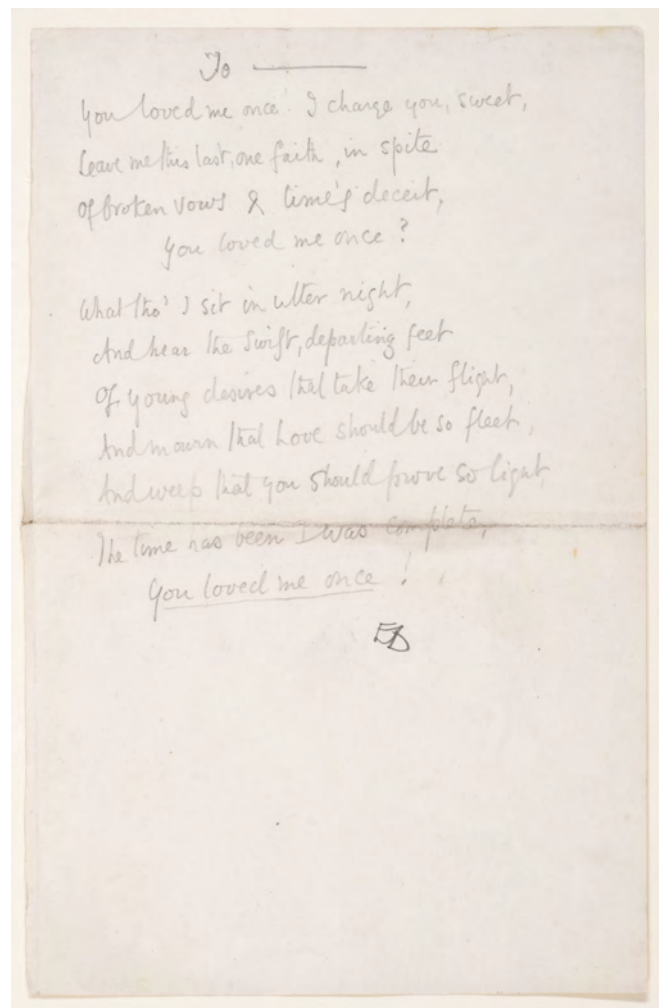 To ———
You loved me once! I charge you, sweet,
Leave me this last, one faith, in spite
Of broken vows & time's deceit,
You loved me once?
What tho' I sit in utter night,
And hear the swift, departing feet
Of young desires that take their flight,
And mourn that Love should be so fleet,
And weep that you should prove so light,
The time has been I was complete,
You loved me once!
ED